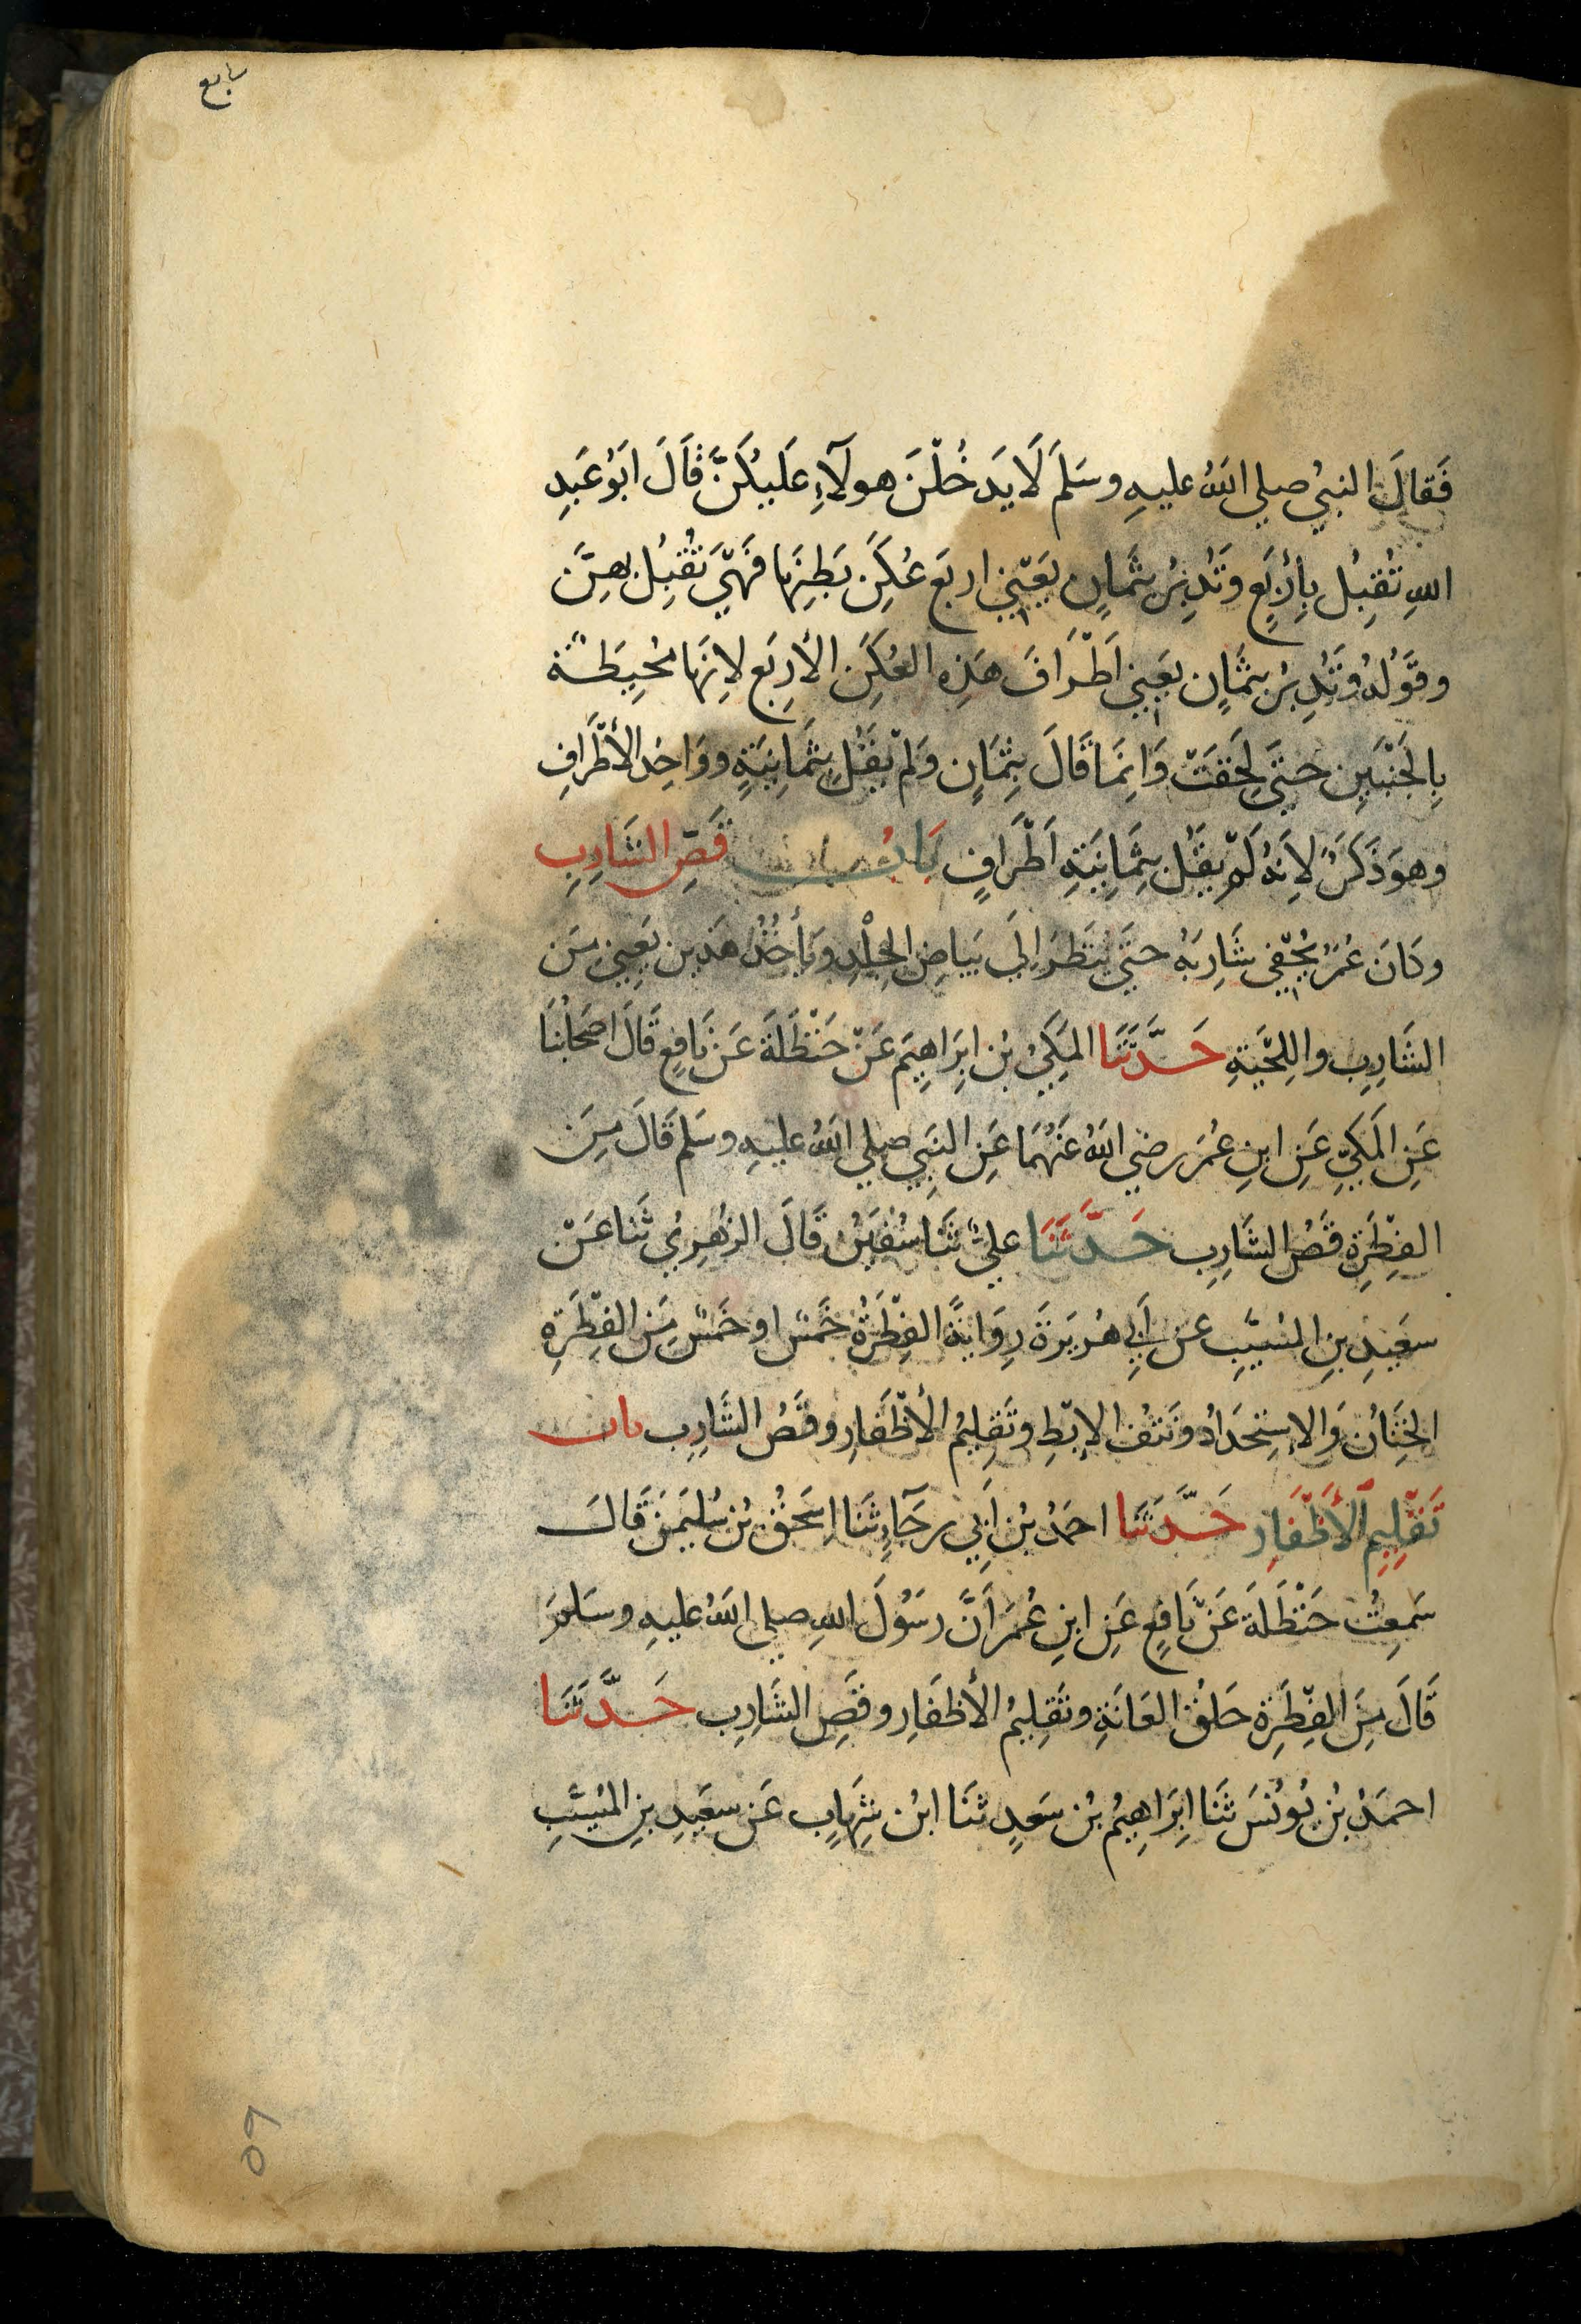 تابع
فَقَالَ النبيُ صلي اللهُ عليهِ وسَلمَ لَا يَدخُلْنَ هولَآءِ عَلَيكُنَّ قَالَ ابَوُ عَبدِ
اللهِ تُقبِلُ بِأربَعٍ وتُدبِرُ بثمَانٍ يَعني اربَع عُكَنِ بَطنِهَا فَهيَ تُقبِلُ بهِنَّ
وقَولُهُ وتُدبِرُ بثمَانٍ يعَني اَطْرَافَ هَذِهِ العُكَنِ الأربَع لانهَا مُحِيطَة
بِالجَنْبَينِ حتيَ لحقَت وَانمَا قَالَ بِثمَانٍ وَلمْ يقُل بثمَانيَةٍ ووَاحِدُ الأطْرَافِ
وهوَ ذَكَرٌ لاِنهُ لَمْ يقُل بثمَانِيَةِ اَطْرَافٍ بَابُ قَصِ الشَارِبِ
وكَانَ عُمَرُ يُحْفي شَارِبَهُ حتيَ يُنظَرَ اِلَي بَيَاضِ الجِلْدِ ويَأخُذُ هذَين يَعِني بَين
الشَارِبِ واللِحْيَةِ حَدَّثَنَا المَكِيُ بُن اِبرَاهِيمَ عَنْ حَنْظَلَةَ عَن نَافِعٍ قَالَ اصحَابُنَا
عَنِ المَكيِّ عَنِ ابنِ عُمَرَ رضي اللهُ عَنْهُمَا عَنِ النَبيِ صلي اللهُ عليهِ وسَلم قَالَ مِنَ
الفِطْرَةِ قَصُ الشَارِبِ حَدَّثَنَا عليٌ ثنَا سُفيَنُ قَالَ الزهرِيُ ثَنَا عَنْ
سعَيدِ بنِ المُسَيَّبِ عن اَبي هُريَرةَ رِوَايَةً الفِطْرَةُ خَمسٌ او خَمسٌ مِنَ الفِطْرَةِ
الخِتَانُ وَالاسِتحدَادُ ونَتفُ الابْطِ وتَقلِيمُ الأظْفَارِ وقَصُ الشَارِبِ باب
تَقْلِيمِ الأَظْفَارِ حَدَّثَنَا احمَدُ بُن اَبِي رجَآءٍ ثَنَا اِسحَقُ بُن سُليمَنَ قَالَ
سَمعِتُ حَنْظَلَةَ عَن نَافِعٍ عَنِ ابنِ عُمَرَ اَنَّ رسَوُلَ اللهِ صلي اللهُ عليهِ وسَلمَ
قَالَ مِنَ الفِطْرَةِ حَلقُ العَانَةِ وتَقلِيمُ الأظفَارِ وقَصِ الشَارِبِ حَدَّثَنَا
احمَدُ بُن يُونُسَ ثنَا اِبرَاهِيمُ بُن سَعدٍ ثنَا ابنُ شِهَابٍ عَن سعَيدِ بنِ المُسَيَّبِ
٥٩